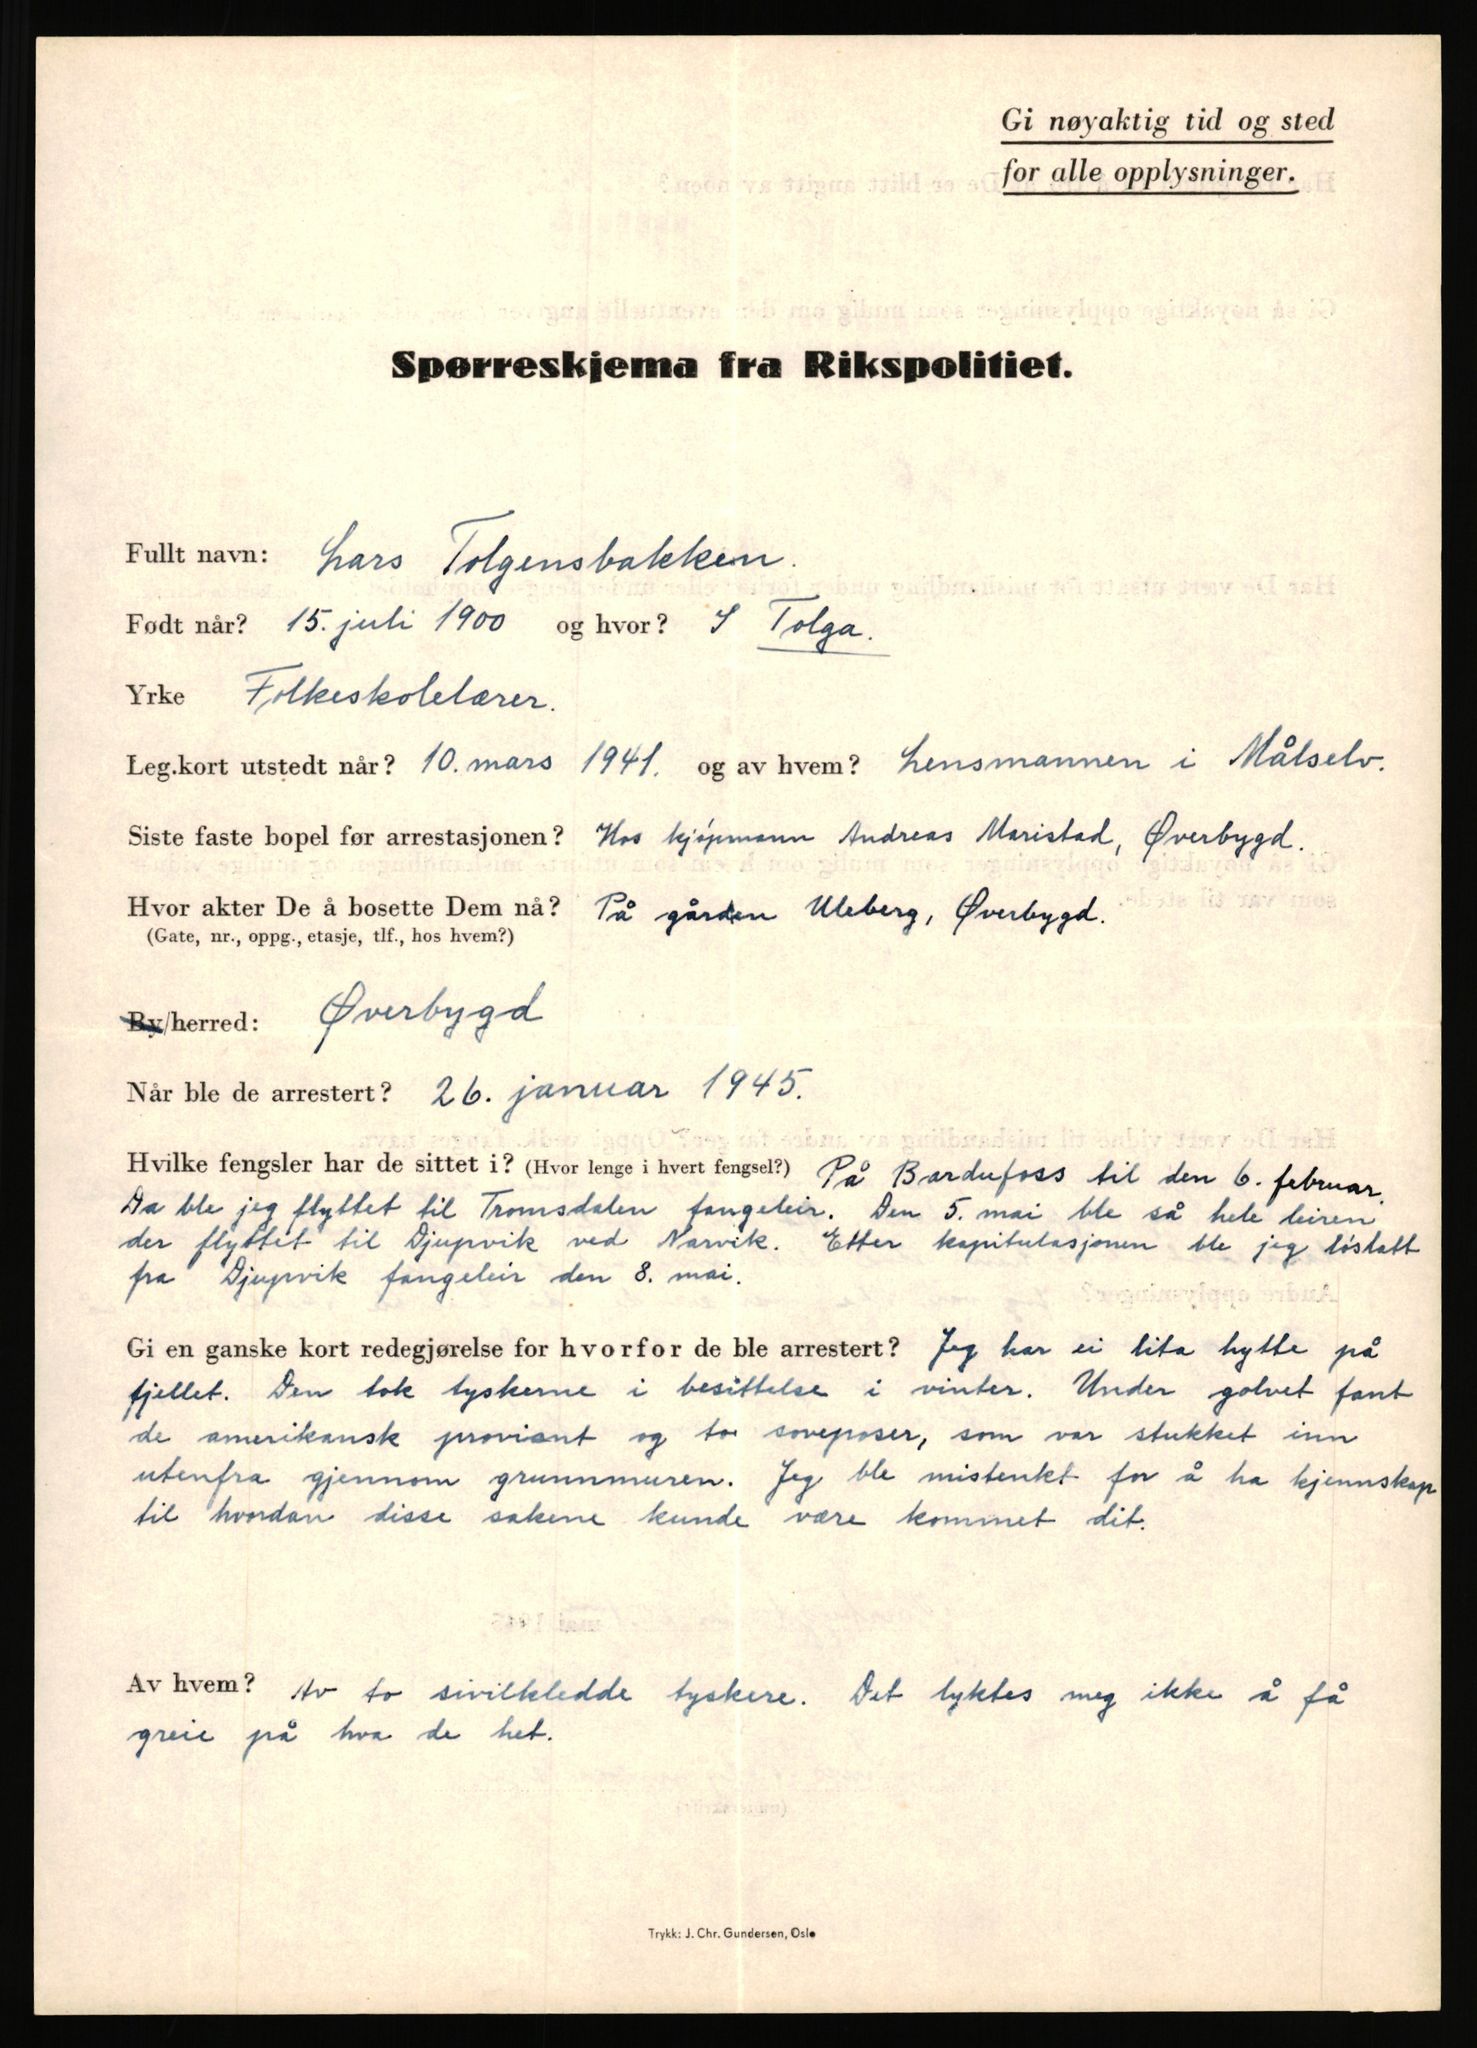 Gi nøyaktig tid og sted
for alle opplysninger.
Spørreskjema fra Rikspolitiet.
Fullt navn: Lars Tolgensbakken.
Født når? 15. juli 1900 og hvor? I Tolga.
Yrke Folkeskolelærer.
Leg.kort utstedt når? 10. mars 1941. og av hvem? Lensmannen i Målselv.
Siste faste bopel før arrestasjonen? Hos kjøpmann Andreas Maristad, Øverbygd.
Hvor akter De å bosette Dem nå? På gården Uleberg, Øverbygd.
(Gate, nr., oppg., etasje, tlf., hos hvem?)
By/herred: Øverbygd
Når ble de arrestert? 26. januar 1945.
Hvilke fengsler har de sittet i? (Hvor lenge i hvert fengsel?) På Bardufoss til den 6. februar.
Da ble jeg flyttet til Tromsdalen fangeleir. Den 5. mai ble så hele leiren
der flyttet til Djupvik ved Narvik. Etter kapitulasjonen ble jeg løslatt
fra Djupvik fangeleir den 8. mai.
Gi en ganske kort redegjørelse for hvorfor de ble arrestert? Jeg har ei lita hytte på
fjellet. Den tok tyskerne i besittelse i vinter. Under golvet fant
de amerikansk proviant og to soveposer, som var stukket inn
utenfra gjennom grunnmuren. Jeg ble mistenkt for å ha kjennskap
til hvordan disse sakene kunde være kommet dit.
Av hvem? Av to sivilkledde tyskere. Det lyktes meg ikke å få
greie på hva de het.
Trykk: J. Chr. Gundersen, Oslo